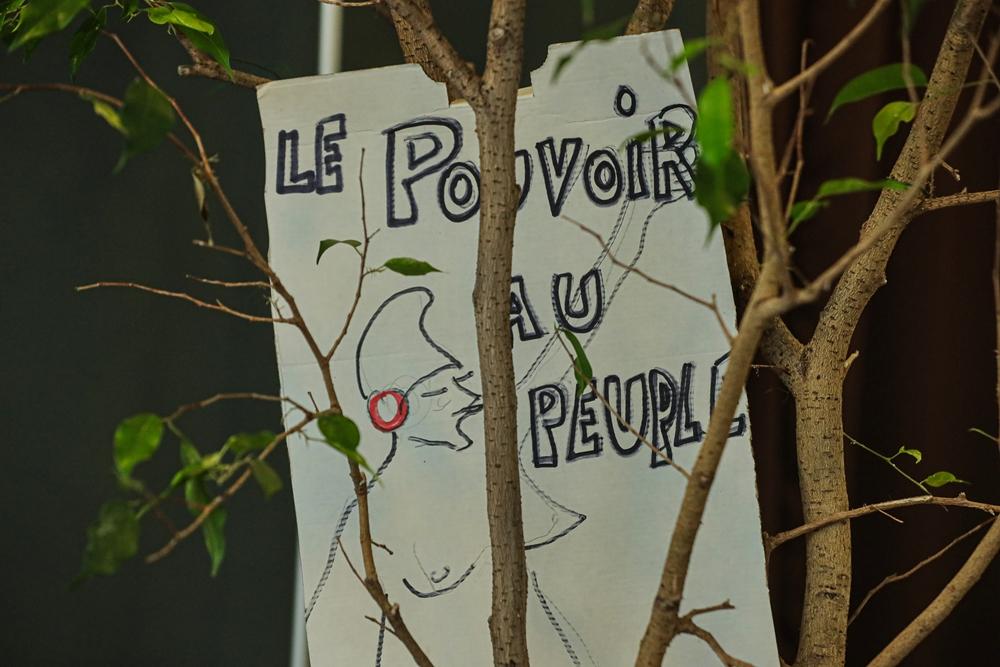 LE POUVOIR
AU
PEUPLE